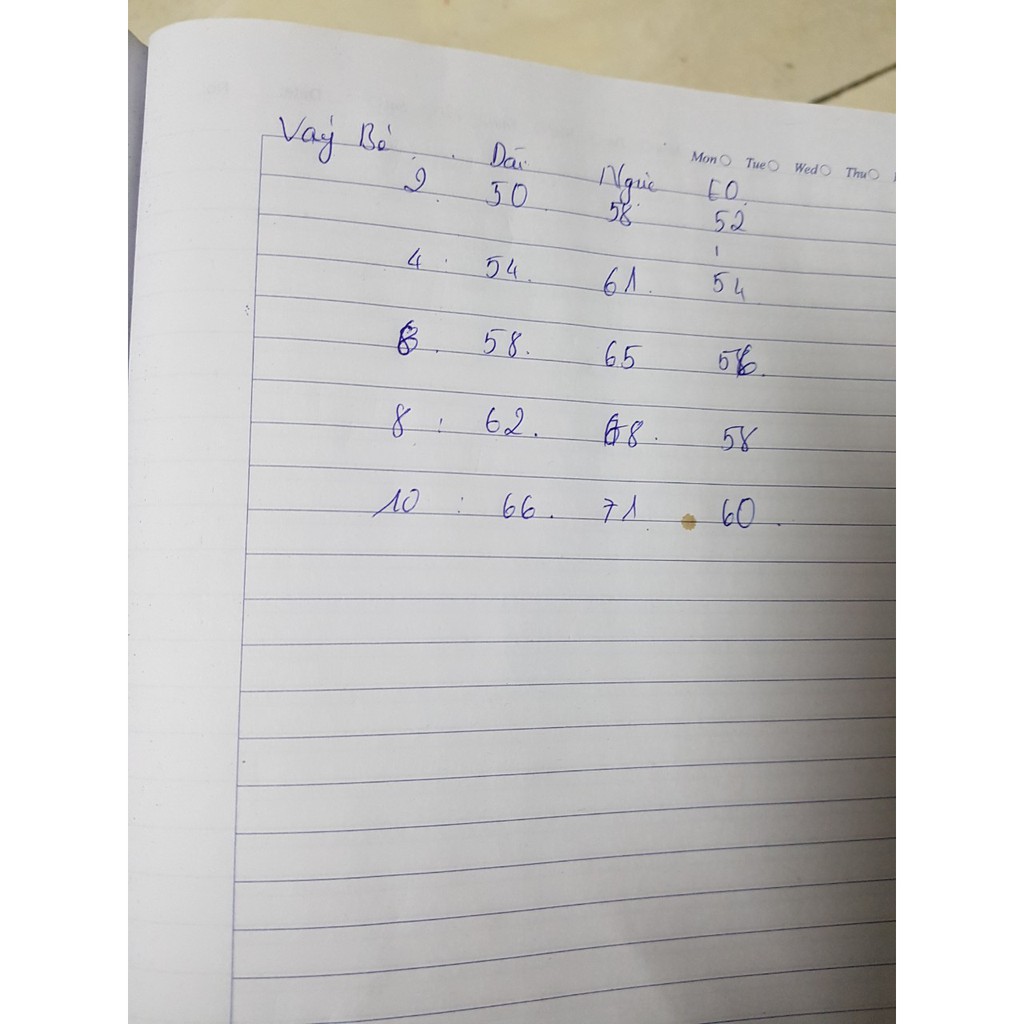 Mon Tue Wed Thu
Vaý Bé . . Dài Ngực EO
2 50 58 52
4 : 54. 61. 54
6. 58. 65 56.
8 : 62. 68. 58
10 : 66. 71. 60.